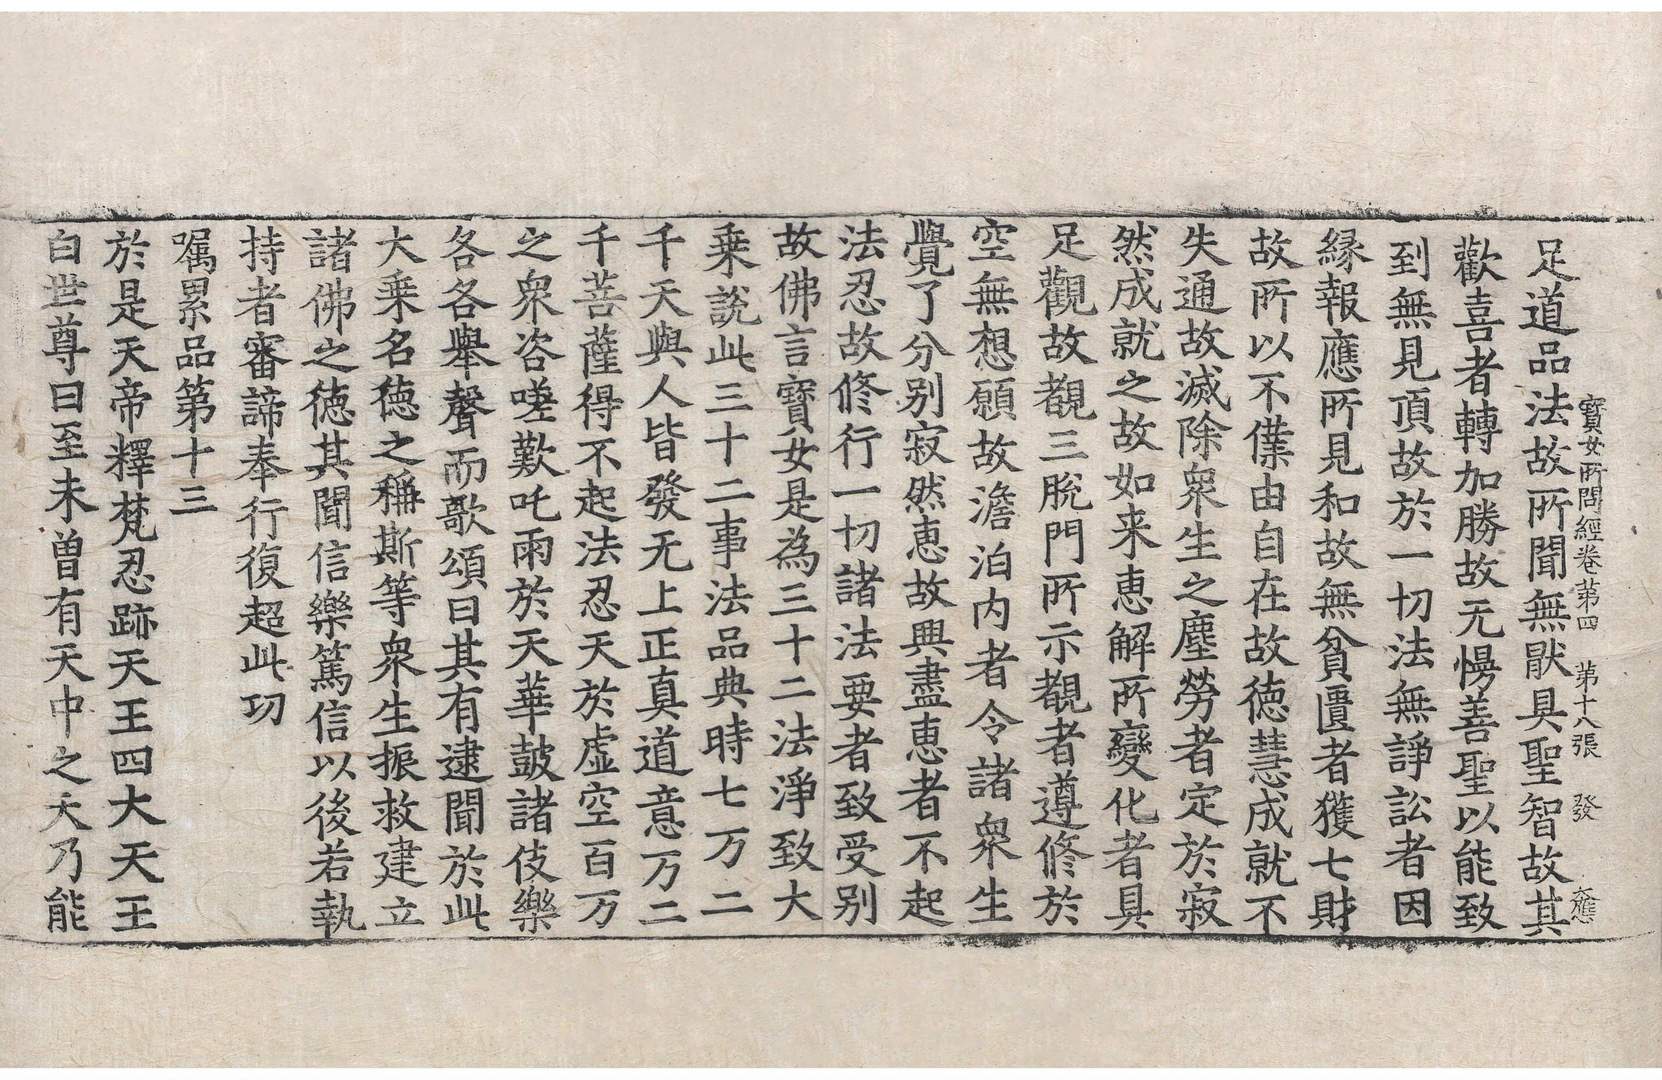 寶女所問經卷第四 第十八張 發
足道品法故所聞無猒具聖智故其
歡喜者轉加勝故无慢善聖以能致
到無見頂故於一切法無諍訟者因
緣報應所見和故無貧匱者獲七財
故所以不僕由自在故德慧成就不
失通故滅除衆生之塵勞者定於寂
然成就之故如来恵解所變化者具
足觀故覩三脫門所示覩者遵修於
空無想願故澹泊內者令諸衆生
覺了分别寂然恵故興盡恵者不起
法忍故修行一切諸法要者致受别
故佛言寶女是為三十二法淨致大
乗說此三十二事法品典時七万二
千天與人皆發无上正真道意万二
千菩薩得不起法忍天於虛空百万
之衆咨嗟歎吒雨於天華鼓諸伎樂
各各舉聲而歌頌曰其有逮聞於此
大乗名徳之稱斯等衆生振救建立
諸佛之徳其聞信樂篤信以後若執
持者審諦奉行復超此功
囑累品第十三
於是天帝釋梵忍跡天王四大天王
白世尊曰至未曾有天中之天乃能